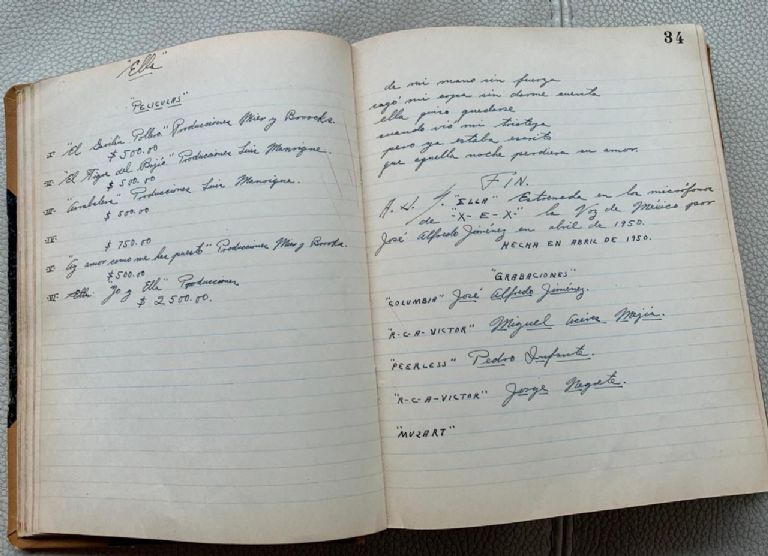 "Ella"
"PELICULAS"
I- "El Gavilan Pollero" Producciones Mier y Broocks.
$ 500.00
II- "El Tigre del Bajío" Producciones Luis Manrique.
$ 500.00
III- "Arrabalera" Producciones Luis Manrique.
$ 500.00
IV-
$ 750.00
V- "Ay amor como me has puesto" Producciones Mier y Broocks.
$500.00
VI- Ella "Yo y Ella" Producciones
$ 2 500.00.
34
de mi mano sin fuerza
cayó mi copa sin darme cuenta
ella quiso quedarse
cuando vió mi tristeza
pero ya estaba escrito
que aquella noche perdiera su amor.
FIN.
"ELLA" Estrenada en los micrófonos
de "X-E-X" la Voz de México por
José Alfredo Jiménez en abril de 1950.
HECHA EN ABRIL DE 1950.
"GRABACIONES"
"COLUMBIA" José Alfredo Jiménez.
"R-C-A-VICTOR" Miguel Aceves Mejía.
"PEERLESS" Pedro Infante.
"R-C-A-VICTOR" Jorge Negrete.
"MUZART"